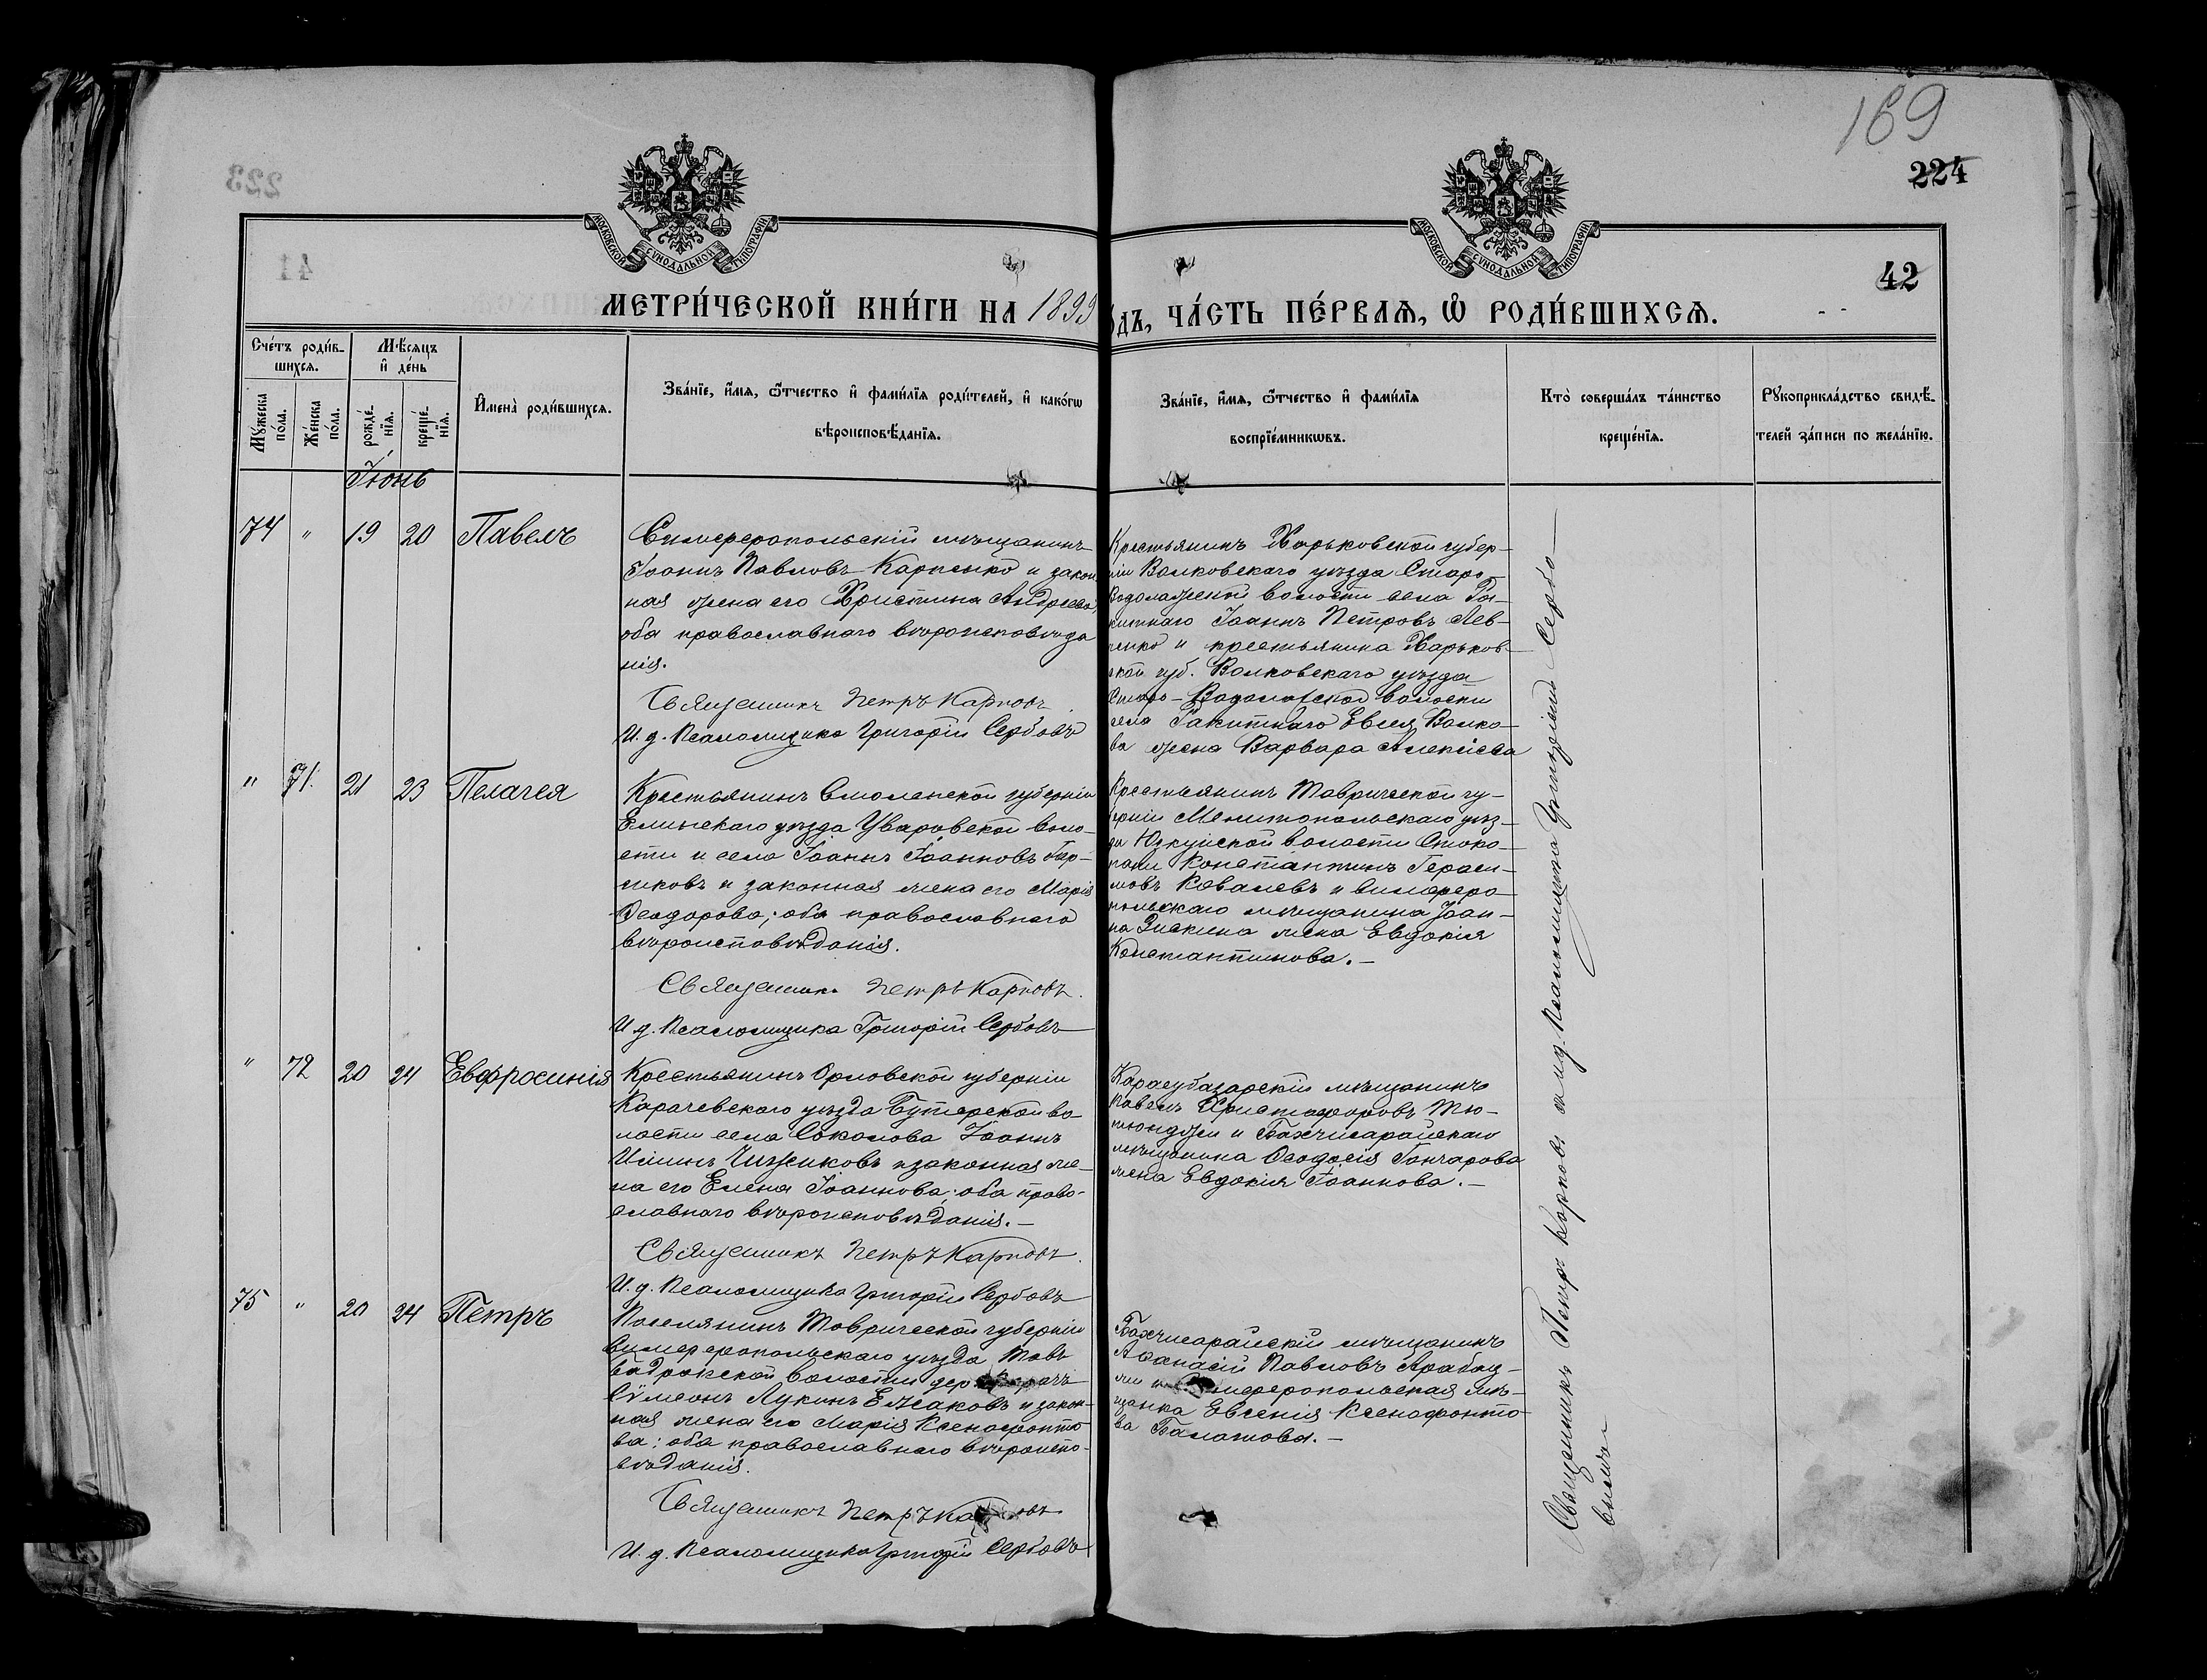 169
224
223
41
42
МОСКОВСКОЙ СУНОДАЛЬНОЙ ТИПОГРАФІИ
МОСКОВСКОЙ СУНОДАЛЬНОЙ ТИПОГРАФІИ
МЕТРИ́ЧЕСКОЙ КНИ́ГИ НА 1899
ОДЪ, ЧА́СТЬ ПЕ́РВАѦ, Ѡ РОДИ́ВШИХСѦ.
Сче́тъ роди́в-
шихсѧ.
Мѣсѧцъ
и де́нь
Мꙋ́жеска
по́ла.
Же́нска
по́ла.
рожде́-
нїѧ.
креще́-
нїѧ.
Имена̀ роди́вшихсѧ.
Зва́нїе, и́мѧ, ѻ́тчество и фами́лїѧ роди́телей, и како́гѡ
вѣроисповѣ́данїѧ.
Зва́нїе, и́мѧ, ѻ́тчество и фами́лїѧ
воспрїе́мникѡвъ.
Кто̀ соверша́лъ та́инство
креще́нїѧ.
Рꙋкоприкла́дство свидѣ́-
телей за́писи по жела́нїю.
Іюнь
74 " 19 20 Павелъ
Симферопольскій мѣщанинъ
Іоаннъ Павловъ Карпенко и закон
ная жена его Христина Андреева,
оба православнаго вѣроисповѣда
нія.
Священникъ Петръ Карповъ
И. д. Псаломщика Григорій Сербовъ
Крестьянинъ Харьковской губер-
ніи Валковскаго уѣзда Старо-
Водолажской волости села Ра-
китнаго Іоаннъ Петровъ Лев-
ченко и крестьянина Харьков-
ской губ. Валковскаго уѣзда
Старо-Водолажской волости
села Ракитнаго Евсея Волко-
ва жена Варвара Алексіева
" 71. 21 23 Пелагея
Крестьянинъ Смоленской губерніи
Ельнскаго уѣзда Уваровской воло-
сти и села Іоаннъ Іоанновъ
и законная жена его Марія
Ѳеодорова; оба православнаго
вѣроисповѣданія.
Священникъ Петръ Карповъ.
И д. Псаломщика Григорій Сербовъ
Крестьянинъ Таврической гу-
берніи Мелитопольскаго уѣз-
да Юзкуйской волости
Константинъ Гераси-
мовъ Ковалевъ и симферо
польскаго мѣщанина Іоан-
на жена Евдокія
Константинова.-
" 72 20 24 Евфросинія
Крестьянинъ Орловской губерніи
Карачевскаго уѣзда Бутерской во
лости села Соколова Іоаннъ
Ильинъ Чижиковъ и законная же-
на его Елена Іоаннова; оба право-
славнаго вѣроисповѣданія.-
Священникъ Петръ Карповъ.
И. д. Псаломщика Григорій Сербовъ
Карасубазарскій мѣщанинъ
Павелъ Христофоровъ Тю-
тюнджи и Бахчисарайскаго
мѣщанина Ѳеодосія Гончарова
жена Евдокія Іоаннова.-
75 " 20 24 Петръ
Поселянинъ Таврической губерніи
Симферопольскаго уѣзда Тавъ
бадракской волости дер
Сѵмеонъ Лукинъ Ежаковъ и закон-
ная жена его Марія Ксенофонто
ва; оба православнаго вѣроиспо-
вѣданія.
Священникъ Петръ Карповъ
И. д. Псаломщика Григорій Сербовъ
Бахчисарайскій мѣщанинъ
Аѳанасій Павловъ Арабад-
жи и Симферопольская мѣ-
щанка Евгенія Ксенофонто
ва Балатова.-
Священникъ Петръ Карповъ съ и.д. Псаломщика Григоріемъ Сербо-
вымъ-